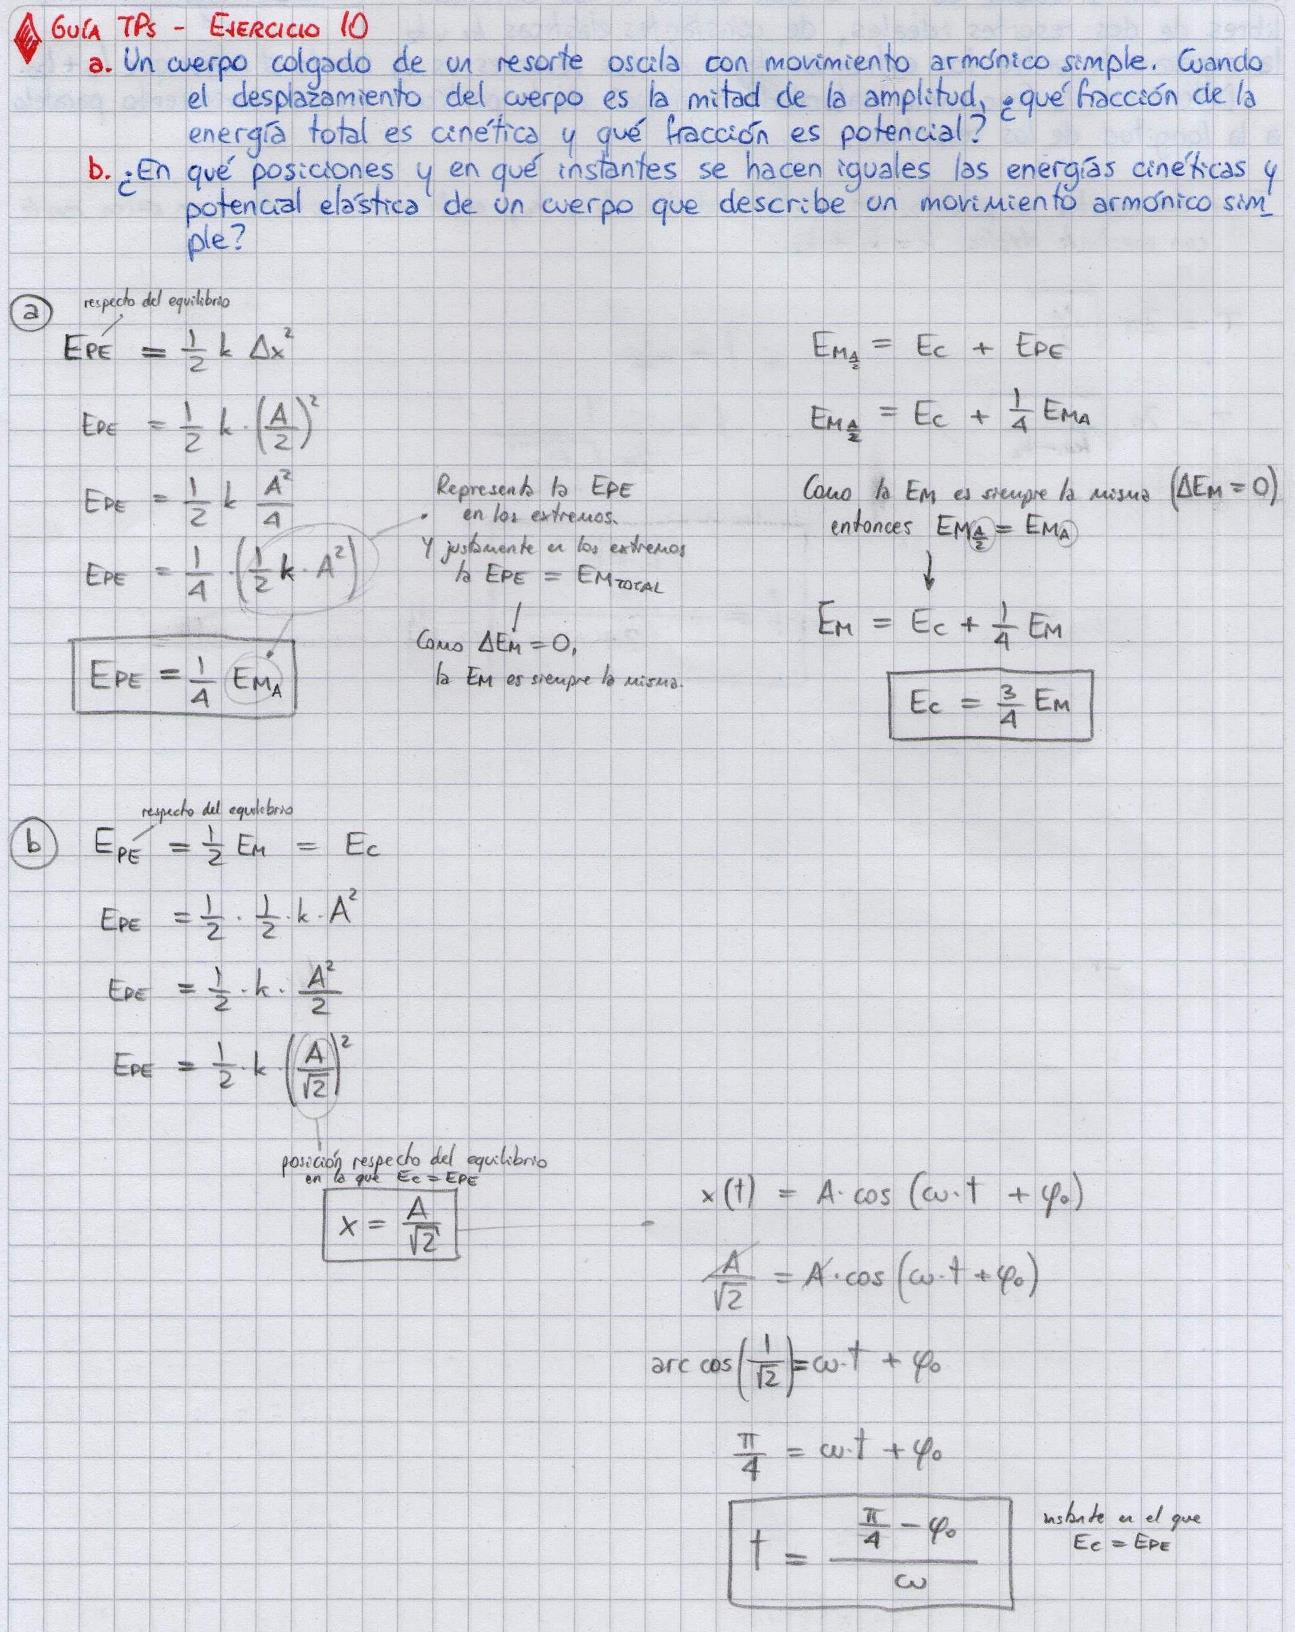 GUÍA TPs - EJERCICIO 10
a. Un cuerpo colgado de un resorte oscila con movimiento armónico simple. Cuando
el desplazamiento del cuerpo es la mitad de la amplitud, ¿qué fracción de la
energía total es cinética y qué fracción es potencial?
b. ¿En qué posiciones y en qué instantes se hacen iguales las energías cinéticas y
potencial elástica de un cuerpo que describe un movimiento armónico sim_
ple?
a
respecto del equilibrio
EPE = 1/2 k Δx²
EPE = 1/2 k · (A/2)²
EPE = 1/2 k A²/4
EPE = 1/4 · (1/2 k · A²)
EPE = 1/4 EMA
Representa la EPE
en los extremos.
Y justamente en los extremos
la EPE = EMTOTAL
Como ΔEM = 0,
la EM es siempre la misma.
EM A/2 = EC + EPE
EM A/2 = EC + 1/4 EMA
Como la EM es siempre la misma (ΔEM = 0)
entonces EM A/2 = EMA
EM = EC + 1/4 EM
EC = 3/4 EM
b
respecto del equilibrio
EPE = 1/2 EM = EC
EPE = 1/2 · 1/2 · k · A²
EPE = 1/2 · k · A²/2
EPE = 1/2 · k · (A/√2)²
posición respecto del equilibrio
en la que EC = EPE
x = A/√2
x(t) = A · cos (ω · t + φ₀)
A/√2 = A · cos (ω · t + φ₀)
arc cos (1/√2) = ω · t + φ₀
π/4 = ω · t + φ₀
t = (π/4 - φ₀)/ω
instante en el que
EC = EPE